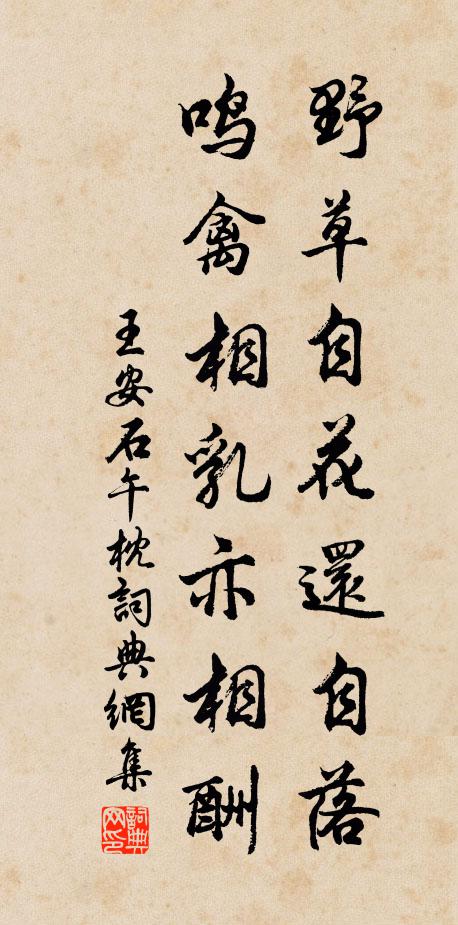 野草自花還自落
鳴禽相乳亦相酬
王安石午枕詞典網集
詞典网印